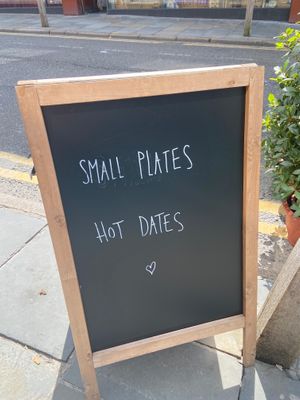 SMALL PLATES
HOT DATES